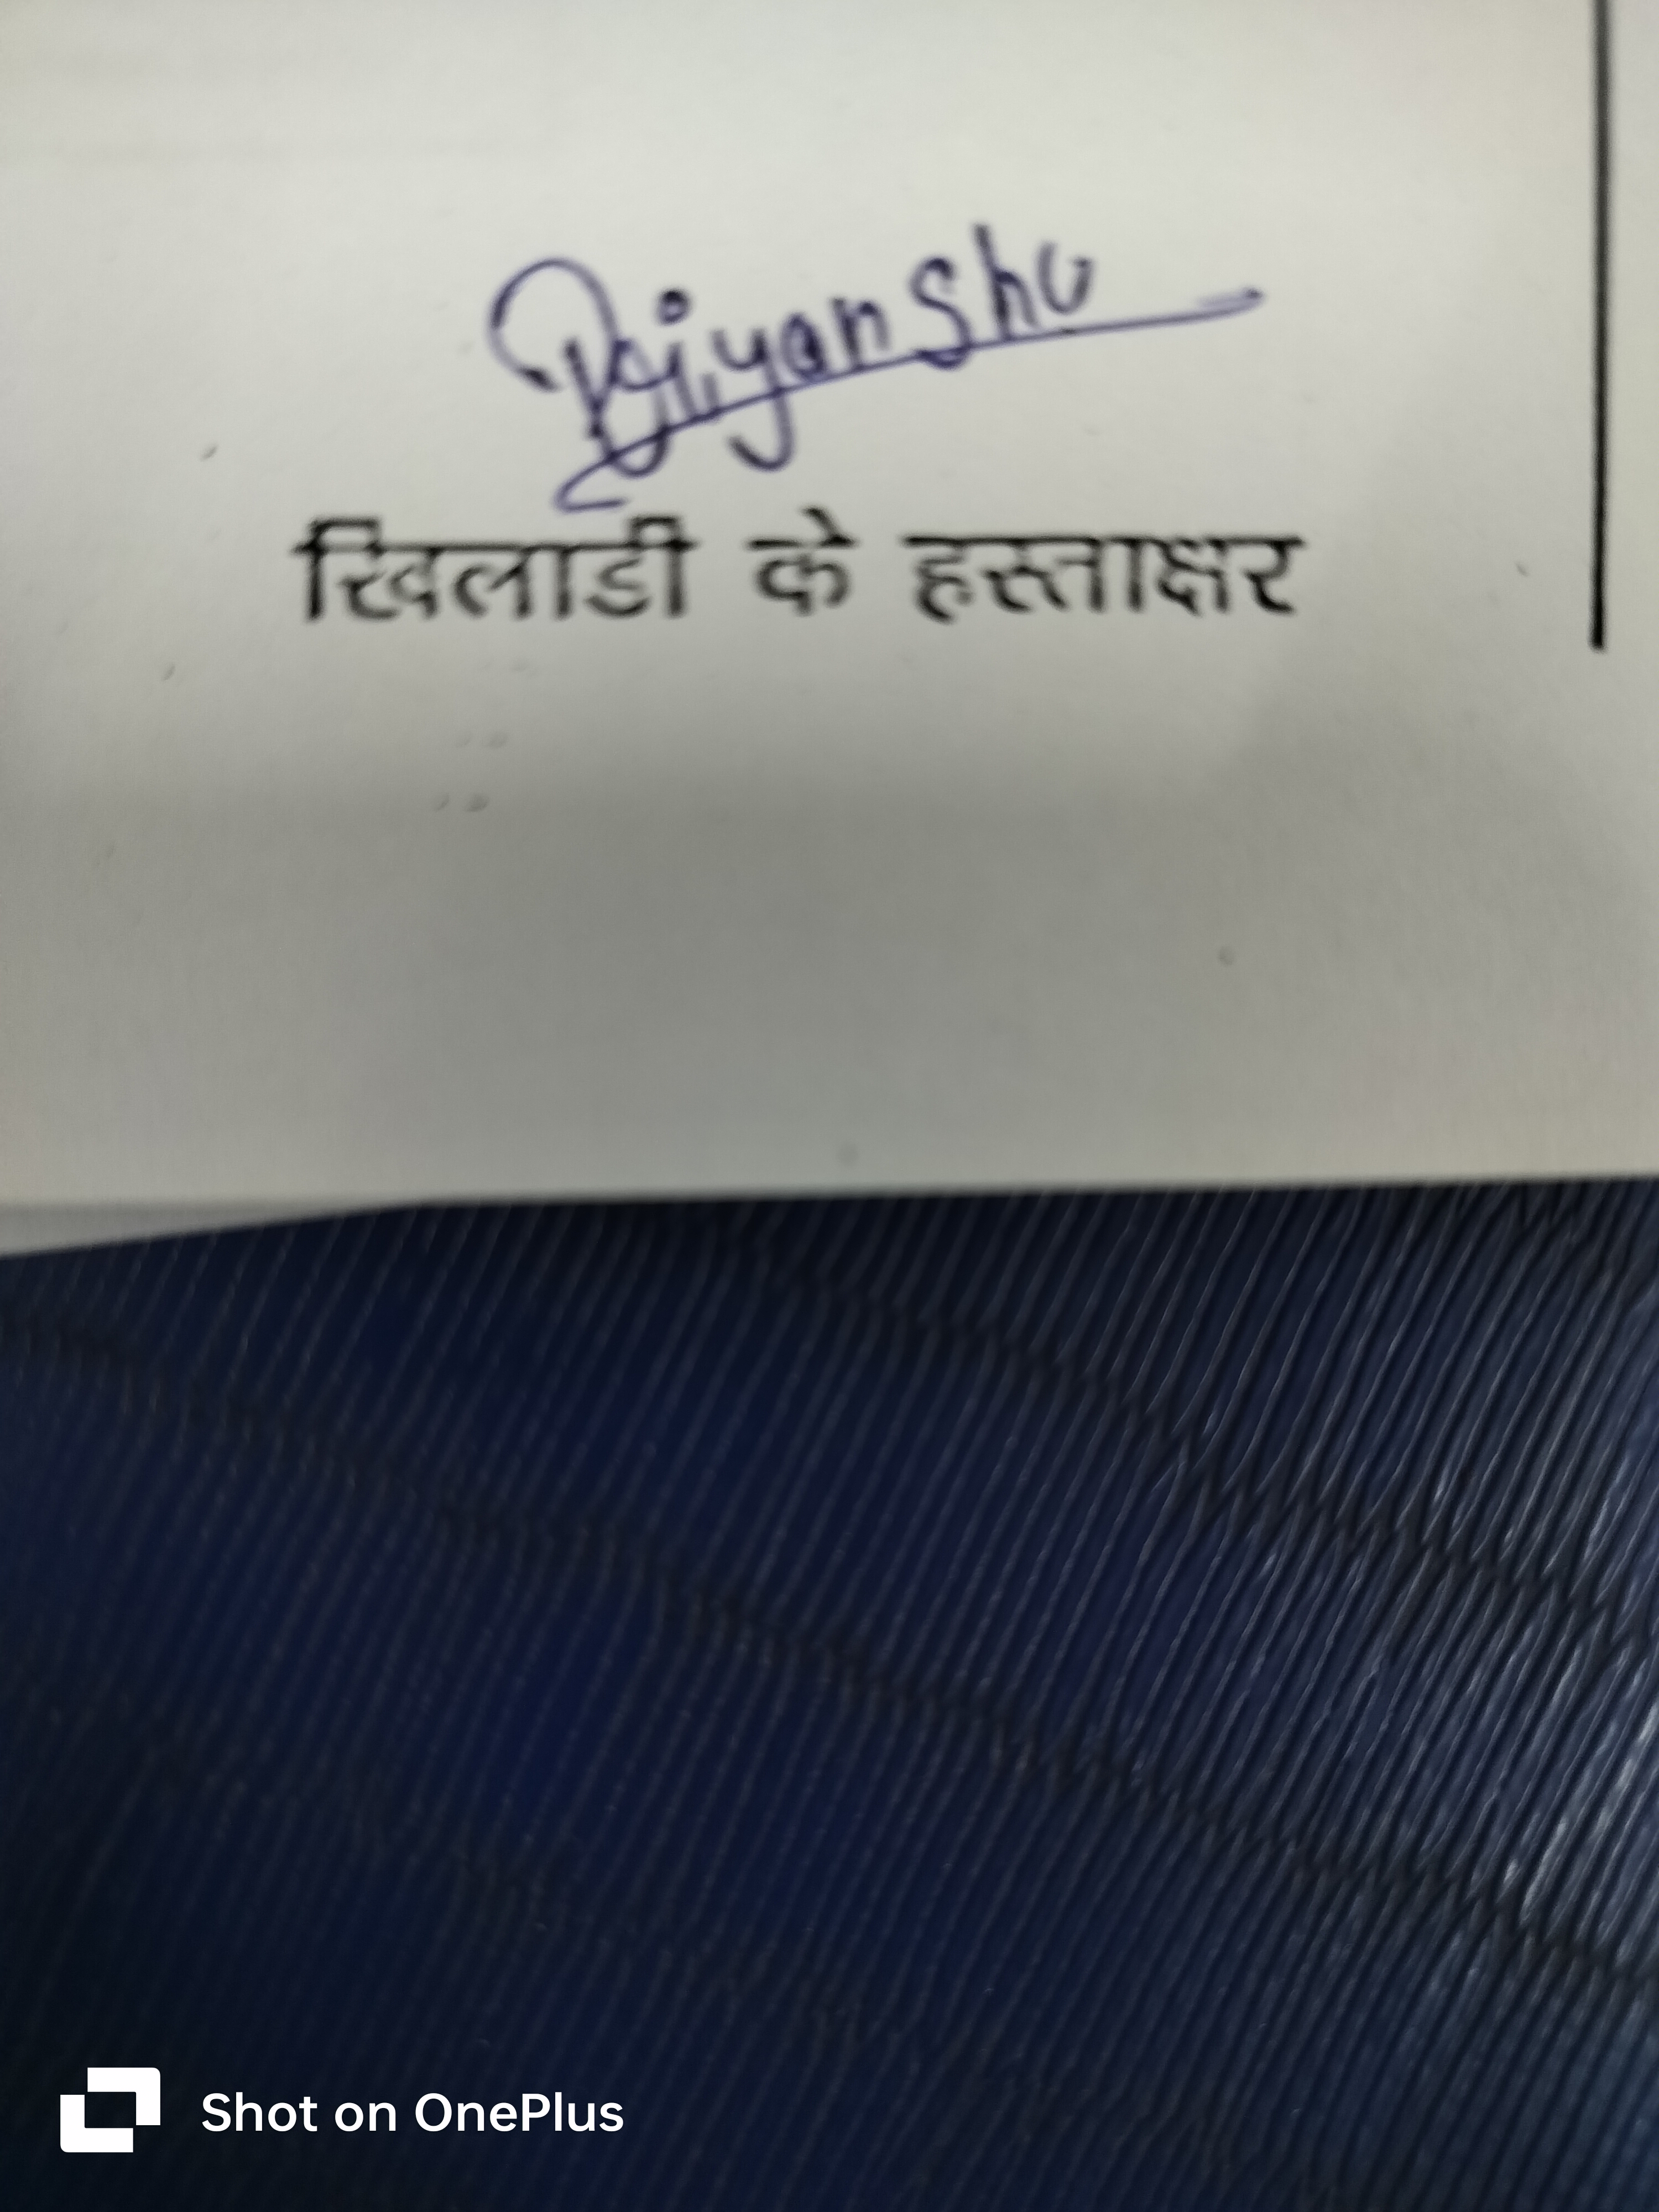 Priyanshu
खिलाडी के हस्ताक्षर
Shot on OnePlus